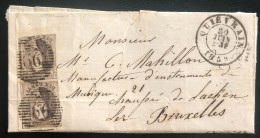 QUIÉVRAIN
Monsieur
Mr C. Mahillon
Manufacture d'instruments de
Musique 21
chaussée de Laeken
Lez Bruxelles